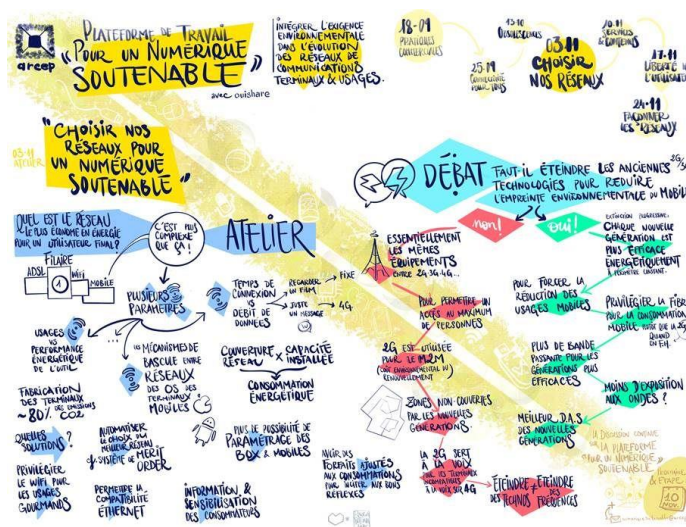 arcep
PLATEFORME DE TRAVAIL
"POUR UN NUMÉRIQUE
SOUTENABLE"
avec ouishare
INTÉGRER L'EXIGENCE
ENVIRONNEMENTALE
DANS L'ÉVOLUTION
DES RÉSEAUX DE
COMMUNICATIONS
TERMINAUX & USAGES.
18-09
PRATIQUES
COMMERCIALES
25-09
POUR TOUS
13-10
03-11
CHOISIR
NOS RÉSEAUX
10-11
SERVICES
& CONTENUS
17-11
LIBERTÉ
L'UTILISATE
24-11
FAÇONNER
LES RÉSEAUX
03-11
ATELIER
"CHOISIR NOS
RÉSEAUX POUR
UN NUMÉRIQUE
SOUTENABLE"
QUEL EST LE RÉSEAU
LE PLUS ÉCONOME EN ÉNERGIE
POUR UN UTILISATEUR FINAL?
C'EST PLUS
COMPLEXE
QUE ÇA!
ATELIER
FILAIRE
ADSL
1
WIFI
MOBILE
PLUSIEURS
PARAMÈTRES
TEMPS DE
CONNEXION
VS
DÉBIT DE
DONNÉES
REGARDER
UN FILM
FIXE
JUSTE
UN MESSAGE
4G
USAGES
VS
PERFORMANCE
ÉNERGÉTIQUE
DE L'OUTIL
LES MÉCANISMES DE
BASCULE ENTRE
RÉSEAUX
DES OS DES
TERMINAUX
MOBILES
COUVERTURE X CAPACITÉ
RÉSEAU INSTALLÉE
CONSOMMATION
ÉNERGÉTIQUE
FABRICATION
DES TERMINAUX
~80% DES ÉMISSIONS
CO2
QUELLES
SOLUTIONS?
AUTOMATISER
LE CHOIX DU
MEILLEUR RÉSEAU
SYSTÈME DE MERIT
ORDER
PLUS DE POSSIBILITÉ DE
PARAMÉTRAGE DES
BOX & MOBILES
PRIVILÉGIER
LE WIFI POUR
LES USAGES
GOURMANDS
PERMETTRE LA
COMPATIBILITÉ
ÉTHERNET
INFORMATION &
SENSIBILISATION
DES CONSOMMATEURS
FORFAITS AJUSTÉS
AUX CONSOMMATIONS
POUR INCITER AUX BONS
RÉFLEXES
DÉBAT
FAUT-IL ÉTEINDRE LES ANCIENNES
TECHNOLOGIES POUR RÉDUIRE
L'EMPREINTE ENVIRONNEMENTALE DU MOBIL
non!
oui!
ESSENTIELLEMENT
LES MÊMES
ÉQUIPEMENTS
ENTRE 2G 3G 4G...
POUR PERMETTRE UN
ACCÈS AU MAXIMUM
DE PERSONNES
2G EST UTILISÉE
POUR LE M2M
(COÛT ENVIRONNEMENTAL DU
RENOUVELLEMENT
ZONES NON COUVERTES
PAR LES NOUVELLES
GÉNÉRATIONS
LA 2G SERT
À LA VOIX
POUR LES TERMINAUX
À LA VOIX SUR 4G
ÉTEINDRE ≠ ÉTEINDRE
DES TECHNOS DES
FRÉQUENCES
EXTINCTION PROGRESSIVE:
CHAQUE NOUVELLE
GÉNÉRATION EST
PLUS EFFICACE
ÉNERGÉTIQUEMENT
À PÉRIMÈTRE CONSTANT.
POUR FORCER LA
RÉDUCTION DES
USAGES MOBILES
PRIVILÉGIER LA FIB
POUR LA CONSOMMATION
MOBILE PLUTÔT QUE LA 2G
QUAND
PLUS DE BANDE
PASSANTE POUR LES
GÉNÉRATIONS PLUS
EFFICACES
MOINS D'EXPOSITION
AUX ONDES?
MEILLEUR D.A.S
DES NOUVELLES
GÉNÉRATIONS
LA DISCUSSION CONTINUE
SUR LA PLATEFORME
"POUR UN NUMÉRIQUE
SOUTENABLE"
PROCHAINE
ÉTAPE
10
NOV.